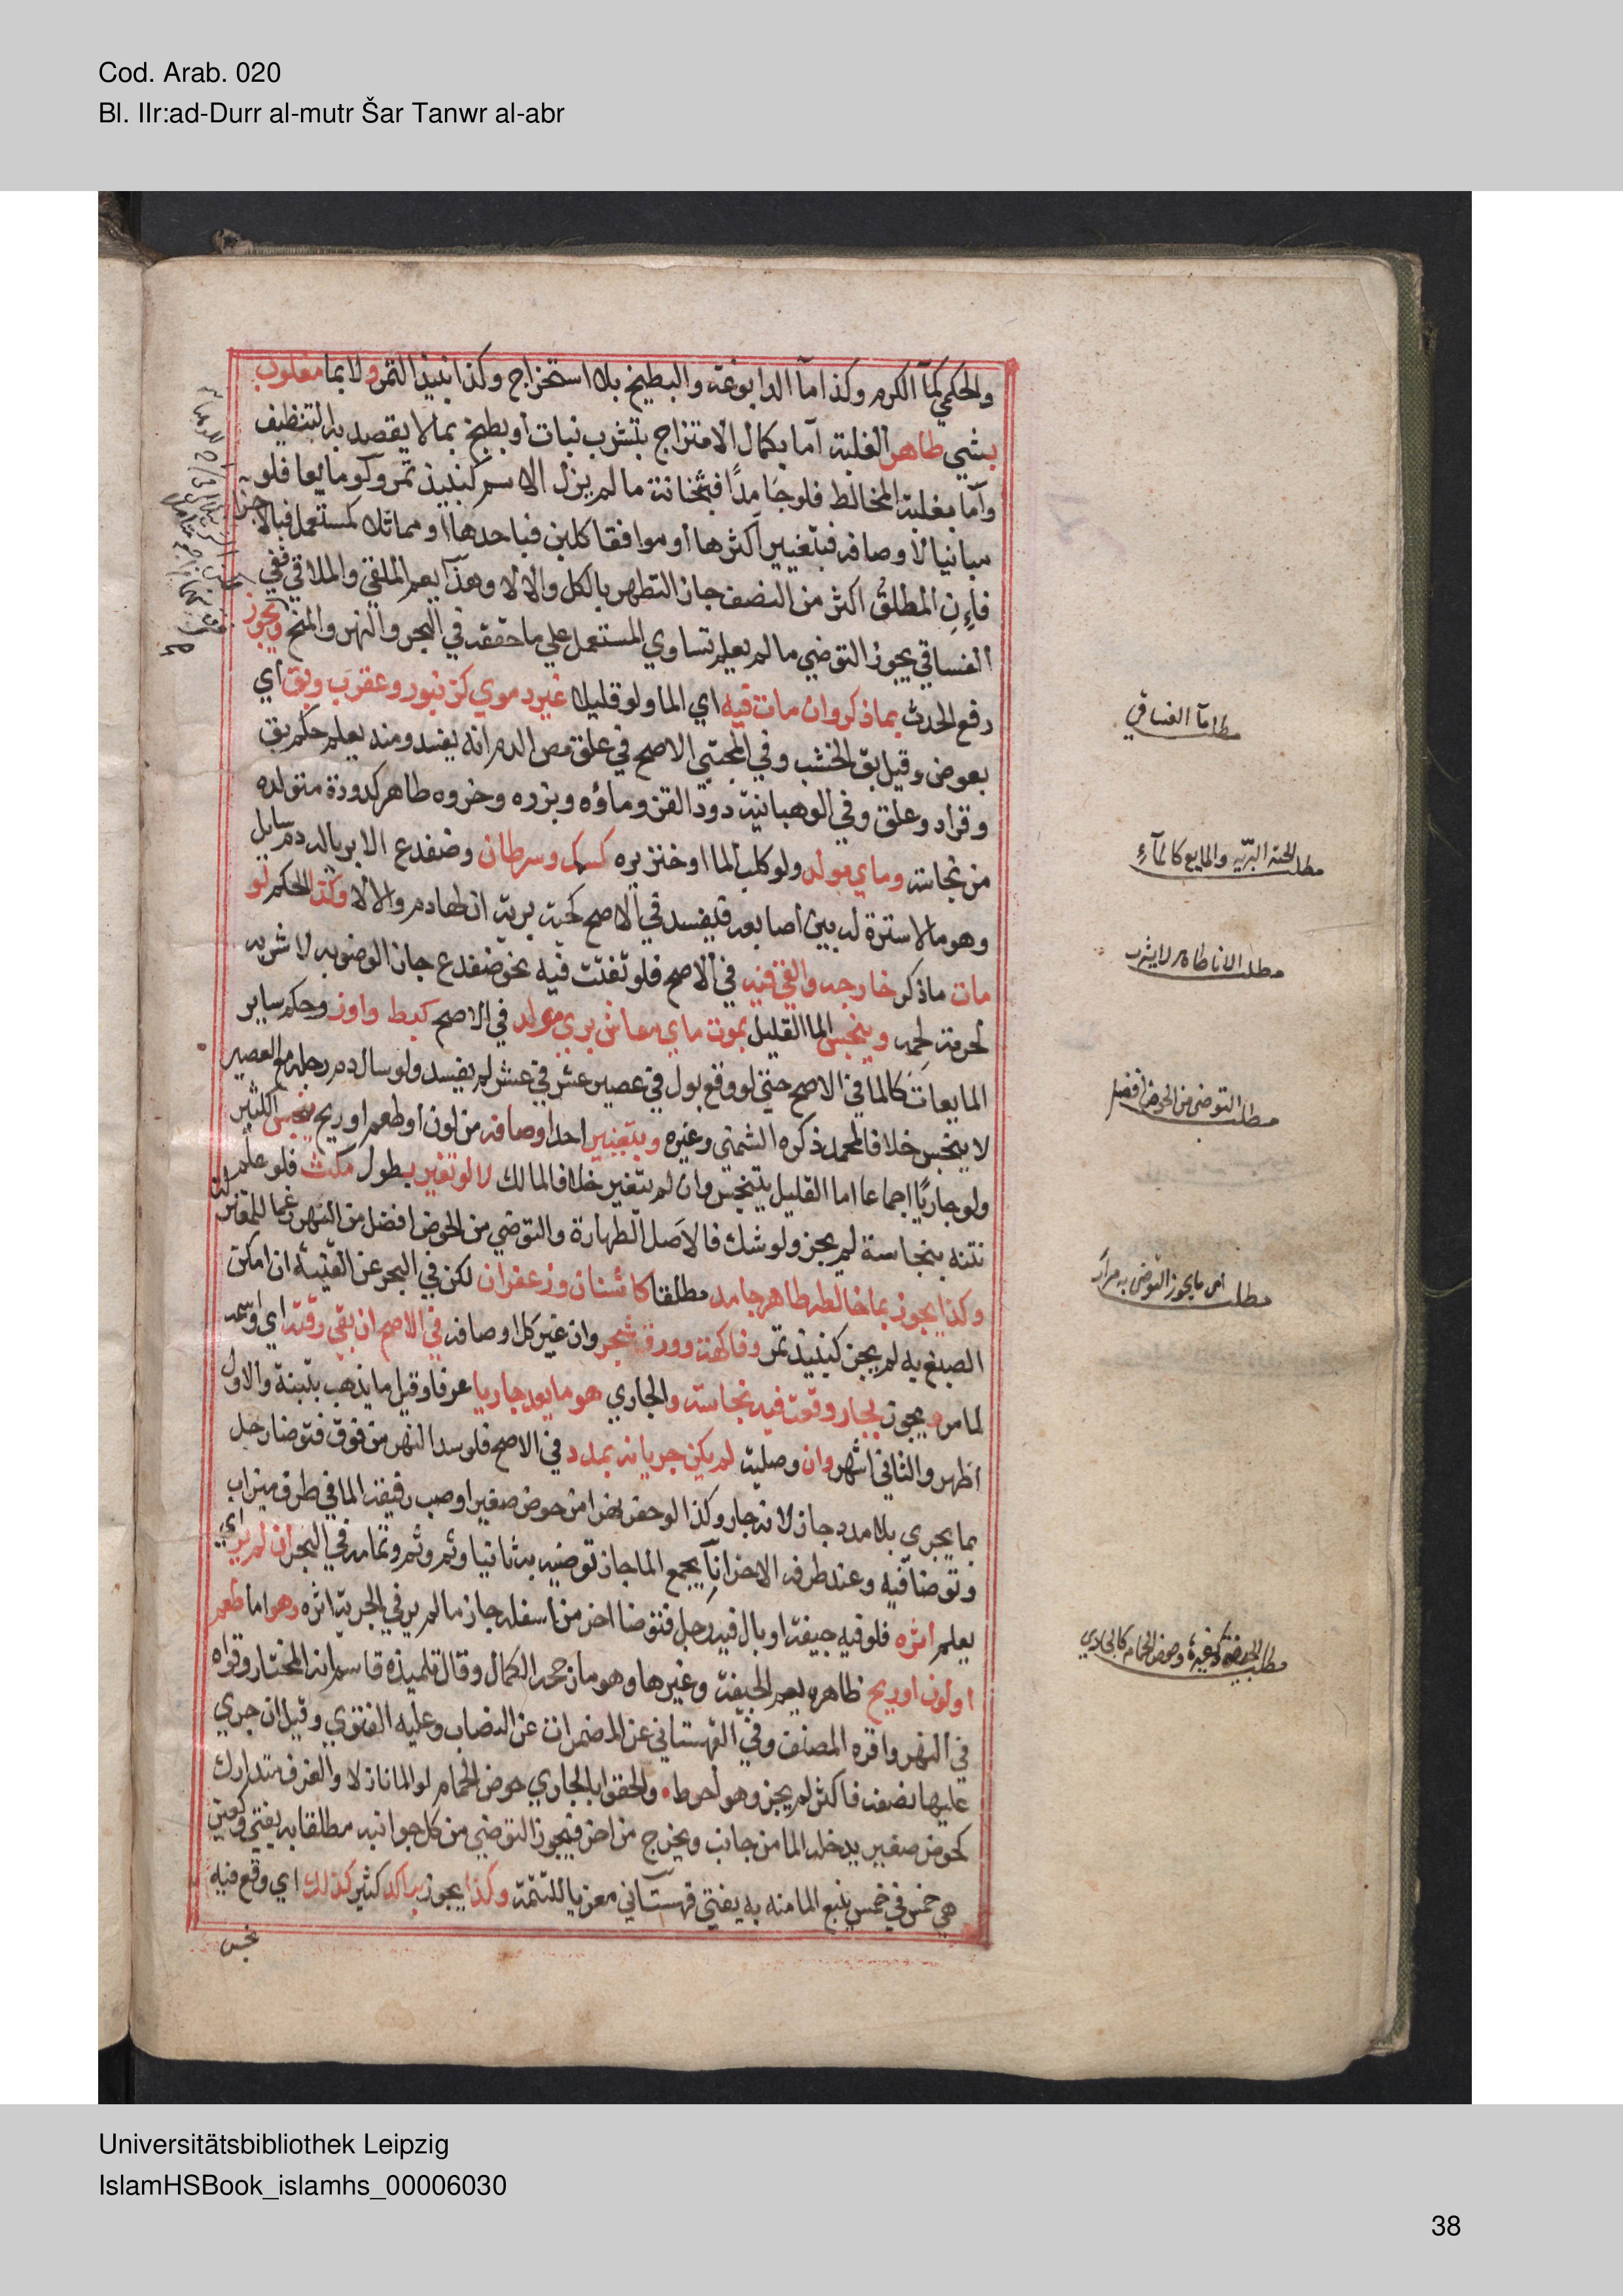 Cod. Arab. 020
Bl. IIr:ad-Durr al-mutr Šar Tanwr al-abr
والحكمي كمآ الكرم وكذا مآ الدابوغة والبطيخ بلا استخراج وكذا نبيذ التمر ولا بما مغلوب
بشي طاهر الغلبة اما بكمال الامتزاج بتشرب نبات أو بطبخ بما لا يقصد به التنظيف
وأما بغلبة المخالط فلو جامدًا فبثخانته ما لم يزل الاسم كنبيذ تمر ولو مايعا فلو
مباينا لاوصافه فبتغيير أكثرها أو موافقا كلبن فباحدها أو مماثلا كمستعمل فبالاجزآ
فإن المطلق اكثر من النصف جاز التطهر بالكل والا لا وهذا يعم الملقي والملاقي ففي
الفساقي يجوز التوضي ما لم يعلم تساوي المستعمل علي ما حققه في البحر والنهر والمنح ويجوز
رفع الحدث بما ذكر وان مات فيه اي الما ولو قليلا غير دموي كزنبور وعقرب وبق أي
بعوض وقيل بق الخشب وفي المجتبي الاصح في علق مص الدم انه يفسد ومنه يعلم حكم بق
وقراد وعلق وفي الوهبانية دود القز وماؤه وبزره وخروه طاهر كدودة متولده
من نجاسة وماي مولد ولو كلب الما او خنزيره كسمك وسرطان وضفدع الا بريا له دم سايل
وهو ما لا سترة له بين أصابعه فيفسد في الاصح كحية برية ان لها دم والا لا وكذا الحكم لو
مات ما ذكر خارجه والقي فيه في الاصح فلو تفتت فيه نحو ضفدع جاز الوضو به لا شربه
لحرمة لحمه وينجس الما القليل بموت ماي معاش بري مولد في الاصح كبط واوز وحكم ساير
المايعات كالما في الاصح حتي لو وقع بول في عصير عشر في عشر لم يفسد ولو سال دم رجله مع العصير
لا ينجس خلافا لمحمد ذكره الشمني وغيره وبتغيير احد اوصافه من لون أو طعم او ريح ينجس الكثير
ولو جاريًا اجماعا اما القليل يتنجس وان لم يتغير خلافا لمالك لا لو تغير بطول مكث فلو علم
نتنه بنجاسة لم يجز ولو شك فالاصل الطهارة والتوضي من الحوض افضل من النهر رغما للمعتزلة
وكذا يجوز بما خالطه طاهر جامد مطلقا كاشنان وزعفران لكن في البحر عن القنية ان امكن
الصبغ به لم يجز كنبيذ تمر وفاكهة وورق شجر وان غير كل اوصافه في الاصح ان بقي رقته اي واسمه
لما مر ويجوز بجار وقعت فيه نجاسة والجاري هو ما يعد جاريا عرفا وقيل ما يذهب بتبنة والاول
اظهر والثاني اشهر وان وصلية لم يكن جريانه بمدد في الاصح فلو سد النهر من فوق فتوضا رجل
بما يجري بلا مدد جاز لانه جار وكذا لو حفر نهرا من حوض صغير او صب رفيقه الما في طرف ميزاب
وتوضا فيه وعند طرفه الاخر انآ يجمع الما جاز توضيه به ثانيا وثم وثم وتمامه في البحر ان لم ير اي
يعلم اثره فلو فيه جيفة او بال فيه رجل فتوضا اخر من أسفله جاز ما لم ير في الجرية اثره وهو اما طعم
او لون او ريح ظاهره يعم الجيفة وغيرها وهو ما رجحه الكمال وقال تلميذه قاسم انه المختار وقواه
في النهر واقره المصنف وفي القهستاني عن المضمرات عن النصاب وعليه الفتوي وقيل ان جري
عليها نصفه فاكثر لم يجز وهو أحوط والحقوا بالجاري حوض الحمام لو الما نازلا والغرف متدارك
كحوض صغير يدخله الما من جانب ويخرج من اخر فيجوز التوضي من كل جوانبه مطلقا به يفتي وكعين
هي خمس في خمس ينبع الما منه به يفتي قهستاني معزيا للتتمة وكذا يجوز براكد كثير كذلك اي وقع فيه
نجس
مطلب مآ الفساقي
مطلب الحية البرّيه والمايع كالمآء
مطلب التوضي من الحوض افضل
مطلب حوض الحمام كالجاري
Universitätsbibliothek Leipzig
IslamHSBook_islamhs_00006030
38